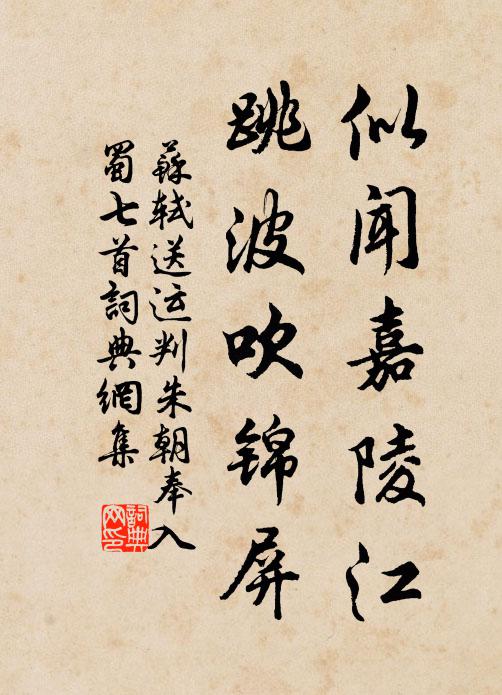 似闻嘉陵江
跳波吹锦屏
蘇軾送运判朱朝奉入
蜀七首詞典網集
詞典
网印